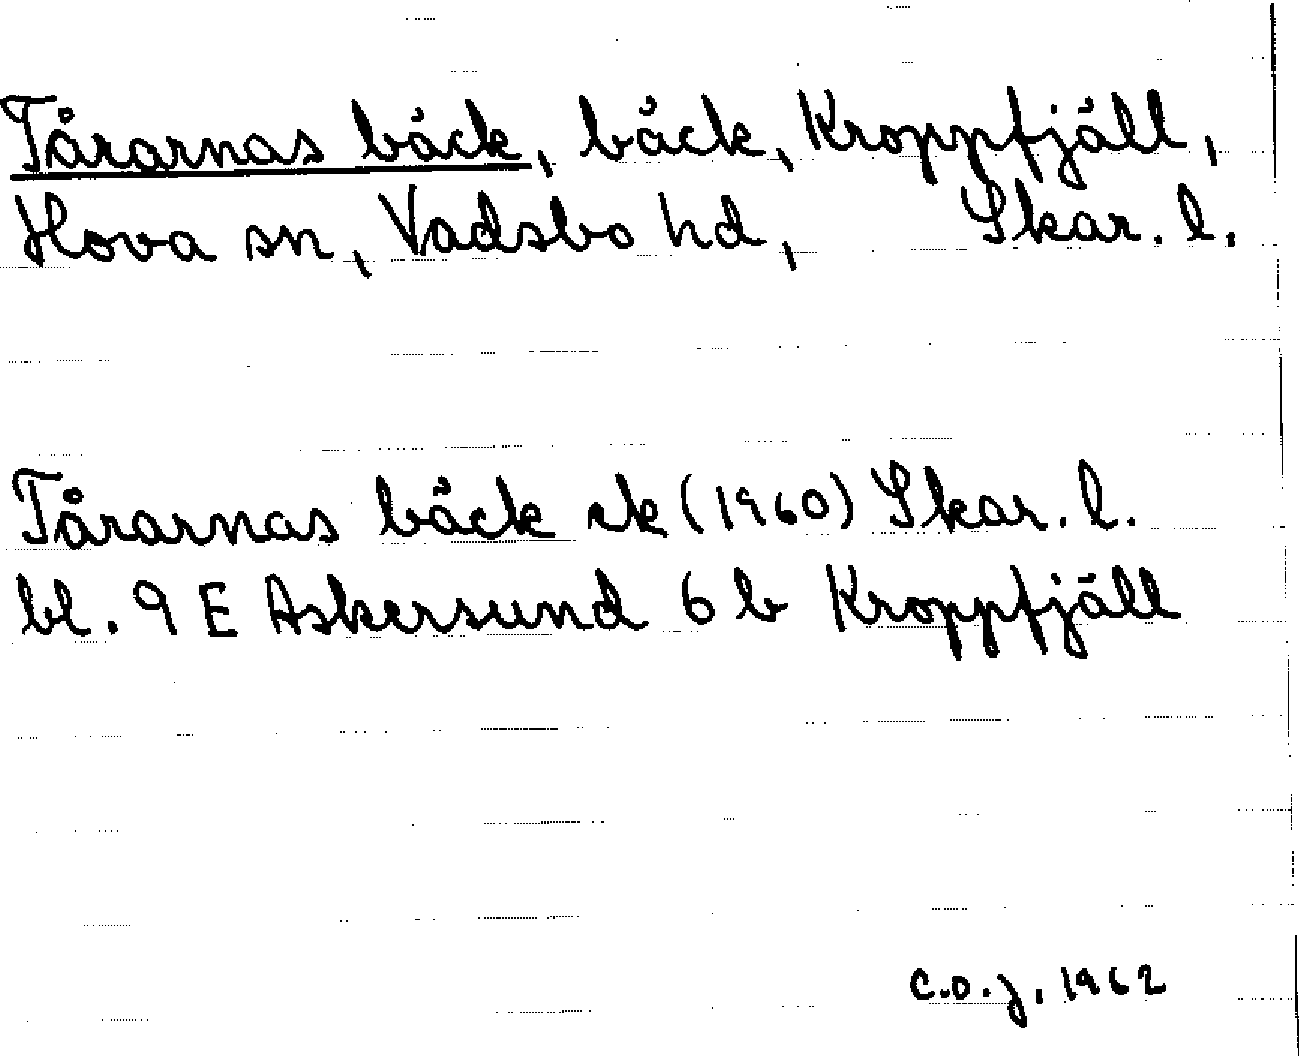 Tårarnas bäck, bäck, Kroppfjäll,
Hova sn, Vadsbo hd, Skar. l.
Tårarnas bäck ek (1960) Skar. l.
bl. 9 E Askersund 6 b Kroppfjäll
C.O.J. 1962